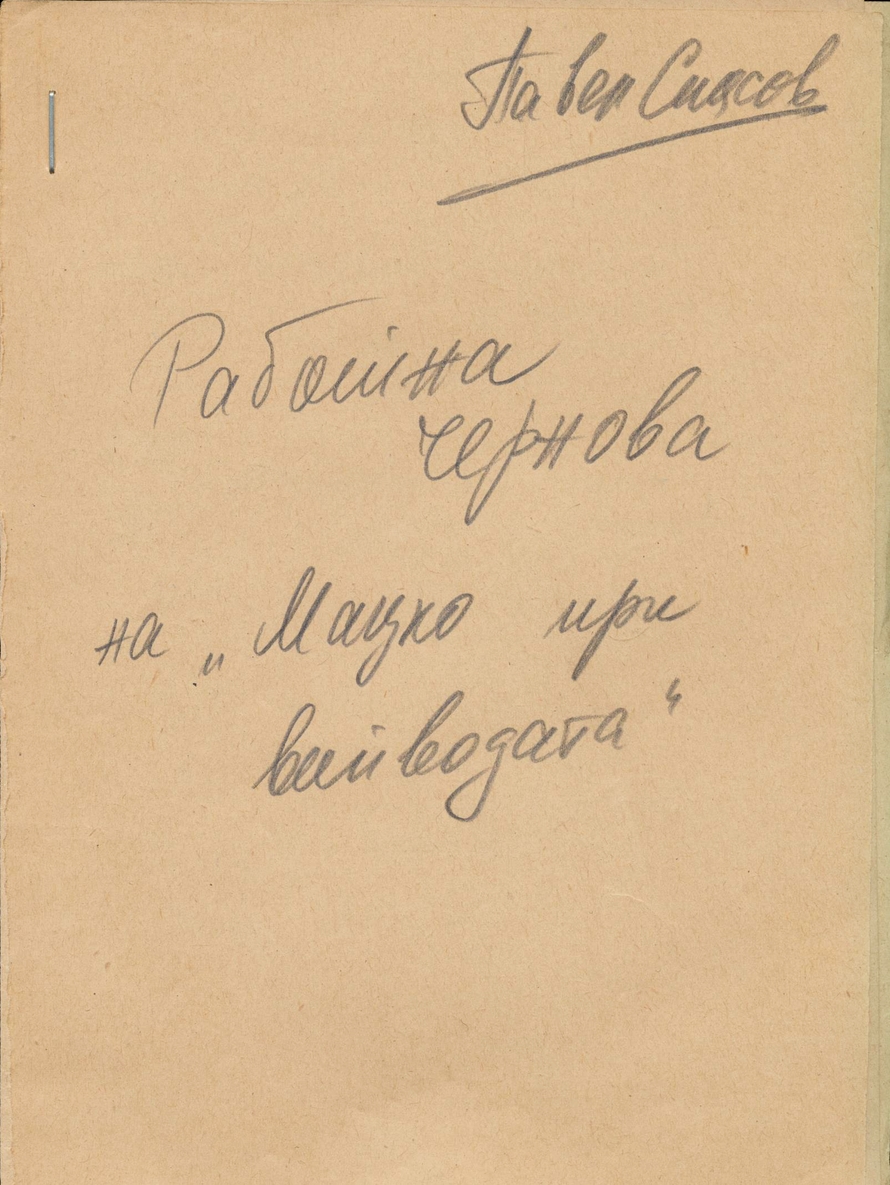 Павел Спасов
Работна
чернова
на „Мацко при
войводата“